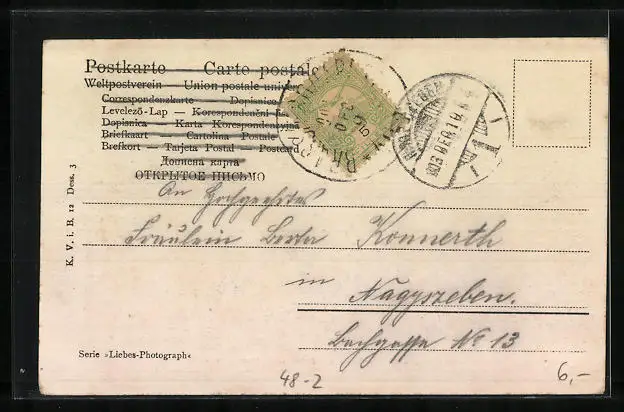 Postkarte — Carte postale
Weltpostverein — Union postale univer
Correspondenzkarte — Dopisnica
Levelező-Lap — Korespondenční
Dopisnica — Karta Korespondencyjna
Briefkaart — Cartolina Postale
Brefkort — Tarjeta Postal — Postcard
Дописна карта
ОТКРЫТОЕ ПИСЬМО
An Hochgeehrtes
Fräulein Berta Konnerth
in
Nagyszeben.
Bachgasse № 13
K. V. i. B. 12 Dess. 3
Serie »Liebes-Photograph«
48-2
6,-